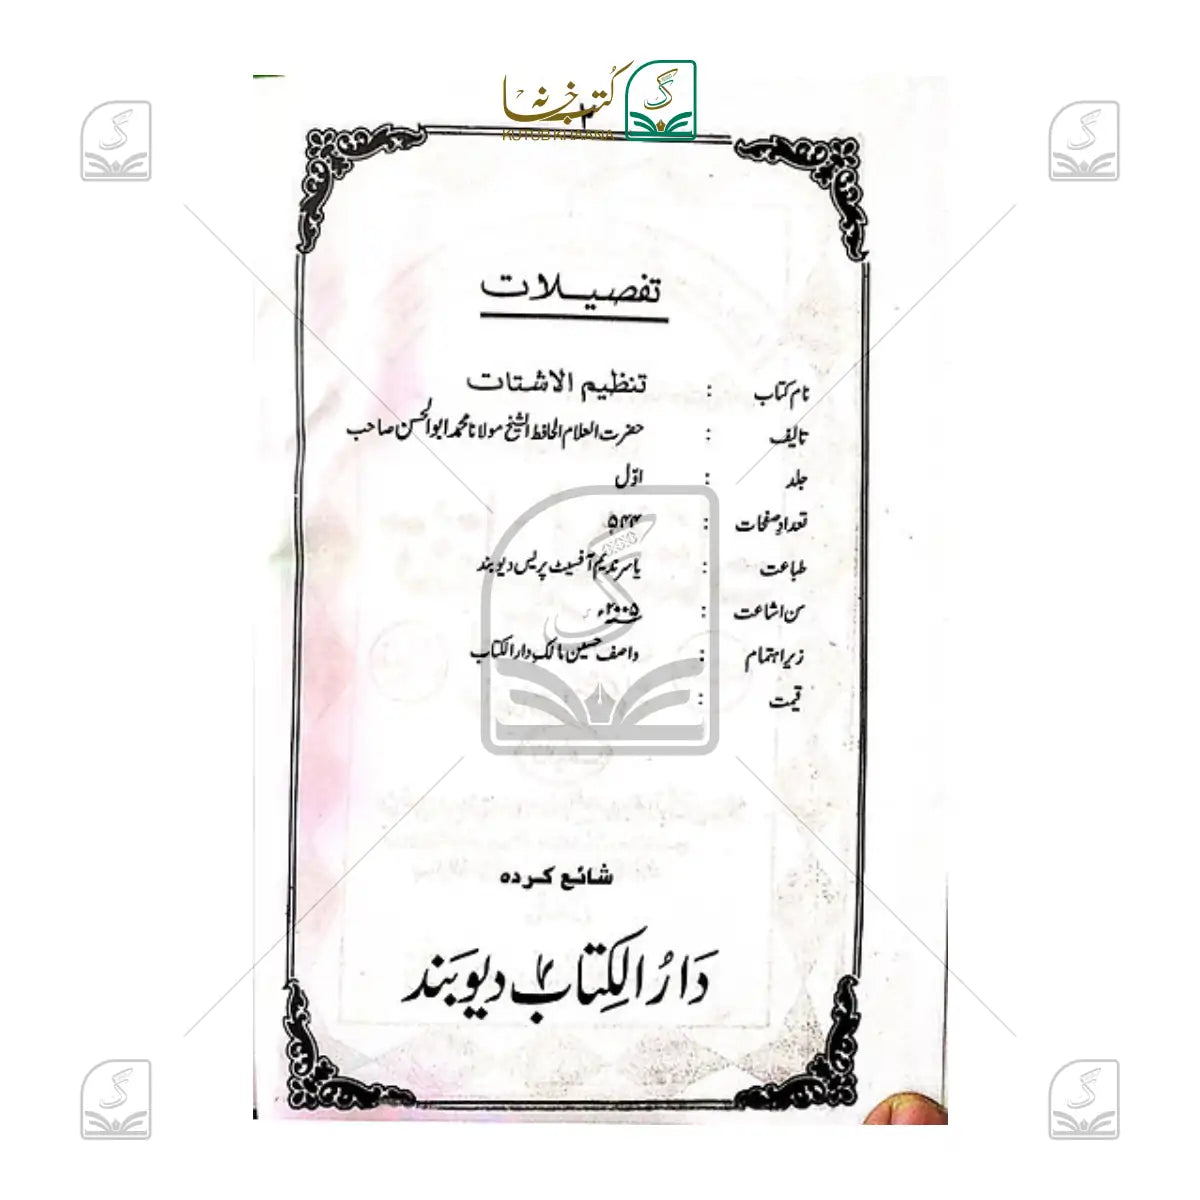 کتب خانہ
KUTUB KHANNA
۲
تفصیلات
نام کتاب : تنظیم الاشتات
تالیف : حضرت العلام الحافظ الشیخ مولانا محمد ابوالحسن صاحب
جلد : اوّل
تعداد صفحات : ۵۴۴
طباعت : یاسر ندیم آفسیٹ پریس دیوبند
سن اشاعت : ۲۰۰۵ء
زیر اہتمام : واصف حسین مالک دار الکتاب
قیمت :
شائع کردہ
دَارُ الکِتَاب دیوبَند